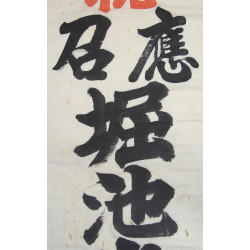 應召
堀池